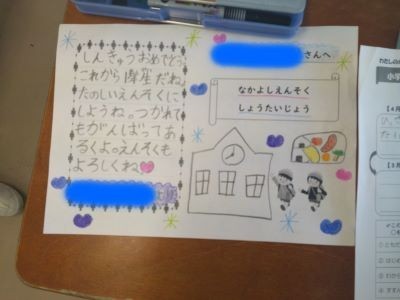 しんきゅうおめでとう
これから
だね。
たのしいえんそくに
しようね。つかれて
もがんばってあ
るくよ。えんそくも
よろしくね
さんへ
なかよしえんそく
しょうたいじょう
わたしの
小学